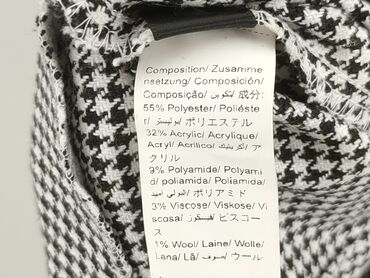 Composition/ Zusamme
nsetzung/ Composición/
Composição/ تكوين/ 成分:
55% Polyester/ Poliéste
r/ بوليستر/ ポリエステル
32% Acrylic/ Acrylique/
Acryl/ Acrilico/ أكريليك/ ア
クリル
9% Polyamide/ Polyami
d/ poliamida/ Poliamida/
البولي أميد/ ポリアミド
3% Viscose/ Viskose/ Vi
scosa/ فيسكوز/ ビスコー
ス
1% Wool/ Laine/ Wolle/
Lana/ Lã/ صوف/ ウール